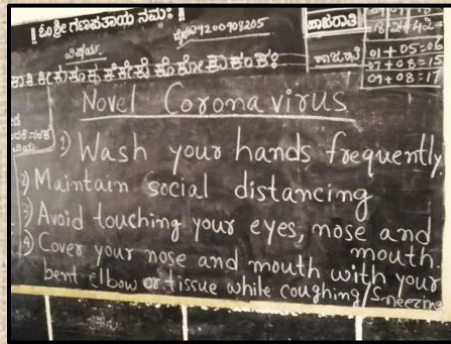 || ಓಂ ಶ್ರೀ ಗಣಪತಾಯ ನಮಃ ||
9200908205
ವಿಷಯ
ಹಾಜರಾತಿ
01 + 05 = 06
07 + 08 = 15
09 + 08 = 17
Novel Corona virus
1) Wash your hands frequently
2) Maintain social distancing
3) Avoid touching your eyes, nose and
mouth.
4) Cover your nose and mouth with your
bent elbow or tissue while coughing/Sneezing